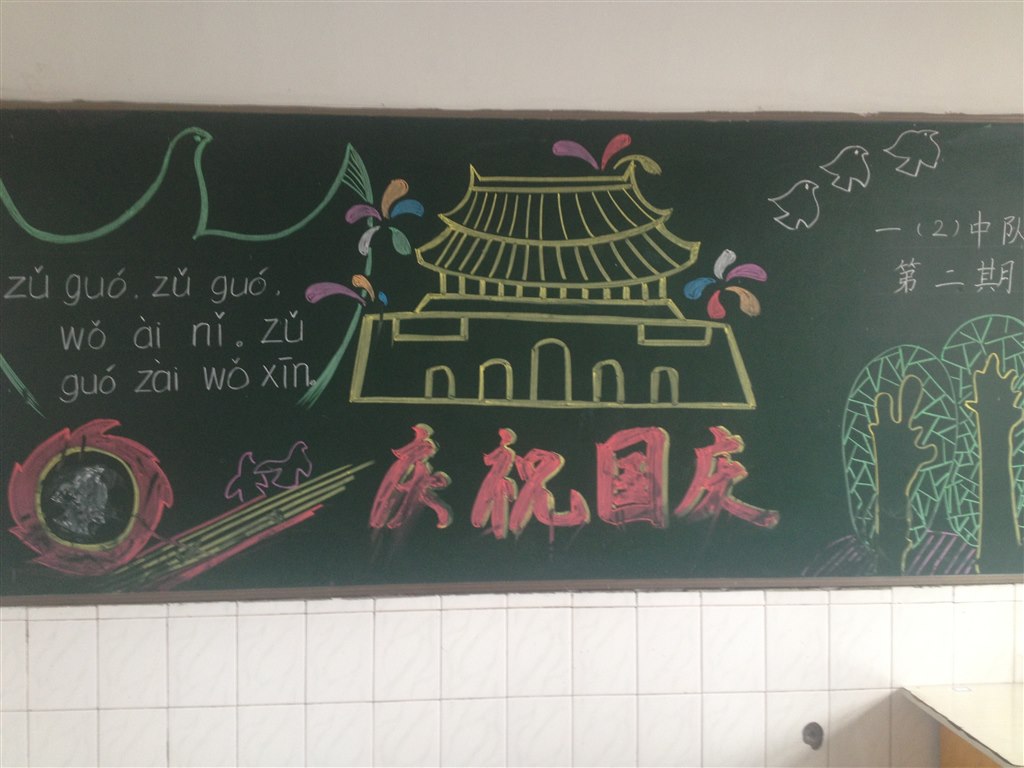 zǔ guó, zǔ guó,
wǒ ài nǐ。zǔ
guó zài wǒ xīn。
庆祝国庆
一(2)中队
第二期